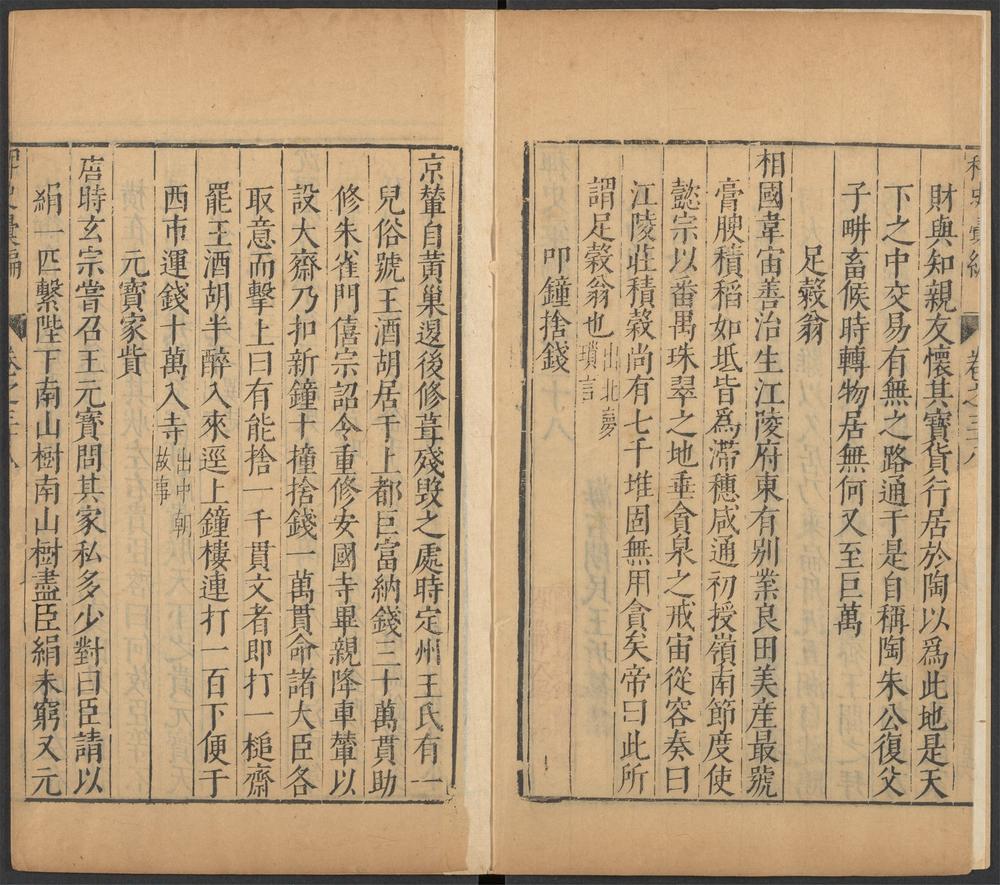 稗史彙編
卷之三十八
財與知親友懷其寶貨行居於陶以爲此地是天
下之中交易有無之路通于是自稱陶朱公復父
子畊畜候時轉物居無何又至巨萬
足穀翁
相國韋宙善治生江陵府東有别業良田美産最號
膏腴積稻如坻皆爲滯穗咸通初授嶺南節度使
懿宗以番禺珠翠之地垂貪泉之戒宙從容奏曰
江陵莊積穀尚有七千堆固無用貪矣帝曰此所
謂足穀翁也出北夢瑣言
叩鐘捨錢
京輦自黄巢退後修葺殘毀之處時定州王氏有一
兒俗號王酒胡居于上都巨富納錢三十萬貫助
修朱雀門僖宗詔令重修安國寺畢親降車輦以
設大齋乃扣新鐘十撞捨錢一萬貫命諸大臣各
取意而擊上曰有能捨一千貫文者即打一槌齋
罷王酒胡半醉入來逕上鐘樓連打一百下便于
西市運錢十萬入寺出中朝故事
元寶家貲
唐時玄宗嘗召王元寶問其家私多少對曰臣請以
絹一匹繫陛下南山樹南山樹盡臣絹未窮又元
稗史彙編
卷之三十八